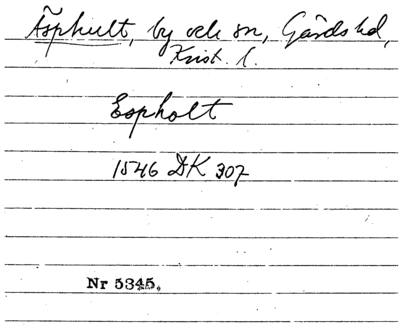 Äsphult, by och sn, Gärds hd,
Krist. l.
Espholt
1546 DK 307
Nr 5345.